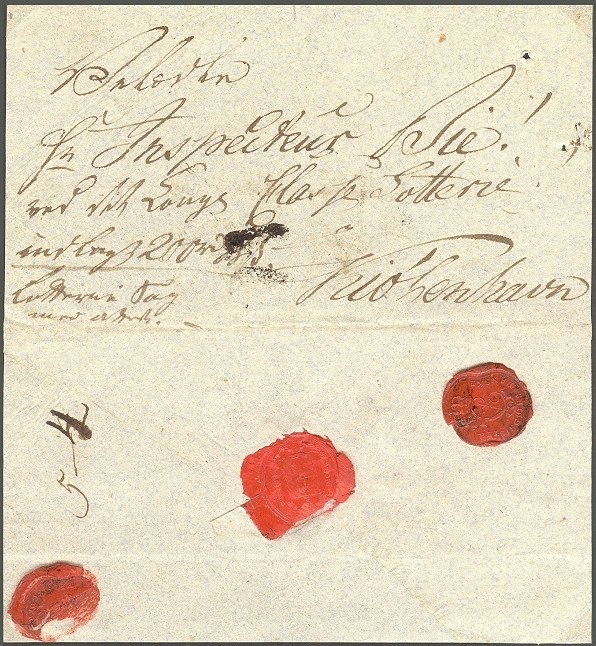 Velædle
Hr Inspecteur Bie!
ved det Kongs Classe Lotterie
indlagt 200 rd
Kiöbenhavn
Lotterie Sag
med attest.
5 4